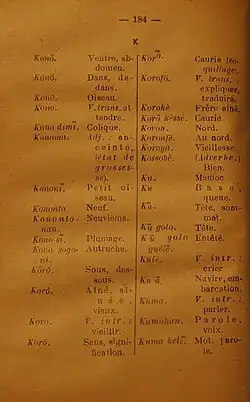 — 184 —
K
Konō. Ventre, abdomen.
Konō. Dans, dedans.
Konō. Oiseau.
Konō. V. trans. attendre.
Kono dimi. Colique.
Konoma. Adj. : enceinte, (état de grossesse).
Kononi. Petit oiseau.
Kononto. Neuf.
Kononto-nan. Neuvième.
Kono si. Plumage.
Kono sogoni. Autruche.
Kōrō. Sous, dessous.
Korō. Aîné, aînée, vieux.
Koro. V. intr. : vieillir.
Korō. Sens, signification.
Korō. Caurie (coquillage).
Korofō. V. trans. expliquer, traduire.
Korokè. Frère aîné.
Korō kèssè. Caurie.
Koron. Nord.
Koronfè. Au nord.
Koroya. Vieillesse.
Kossobè. (Adverbe.) Bien.
Ku. Manioc
Ku Base, queue.
Kū. Tête, sommet.
Kū golo. Tête.
Kū golo guélè. Entêté.
Kulè. V. intr : crier
Kulū. Navire, embarcation.
Kuma. V. intr : parler.
Kumakan. Parole, voix.
Kuma kélé. Mot, parole.